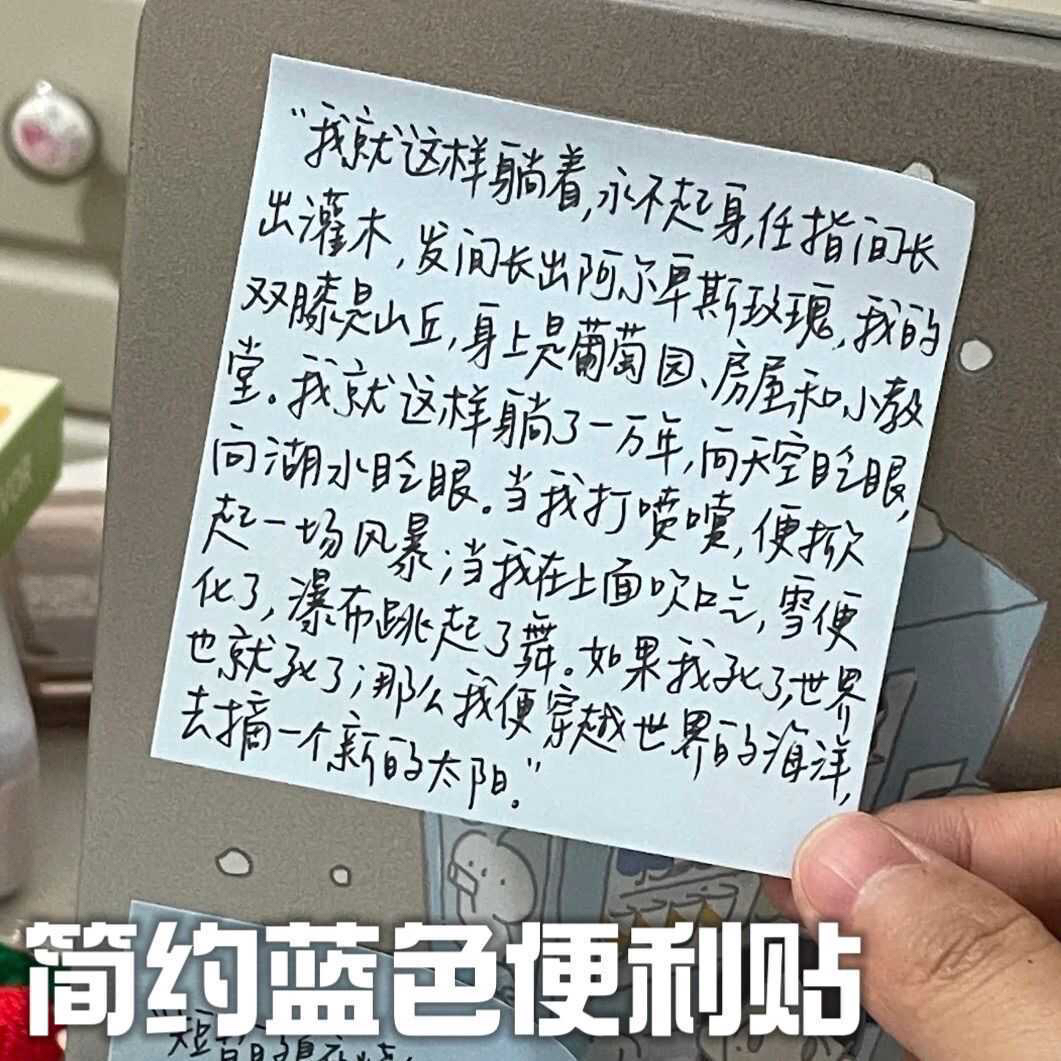 “我就这样躺着,永不起身,任指间长
出灌木,发间长出阿尔卑斯玫瑰,我的
双膝是山丘,身上是葡萄园、房屋和小教
堂。我就这样躺了一万年,向天空眨眼,
向湖水眨眼。当我打喷嚏,便掀
起一场风暴;当我在上面吹口气,雪便
化了,瀑布跳起了舞。如果我死了,世界
也就死了;那么我便穿越世界的海洋,
去摘一个新的太阳。”
简约蓝色便利贴